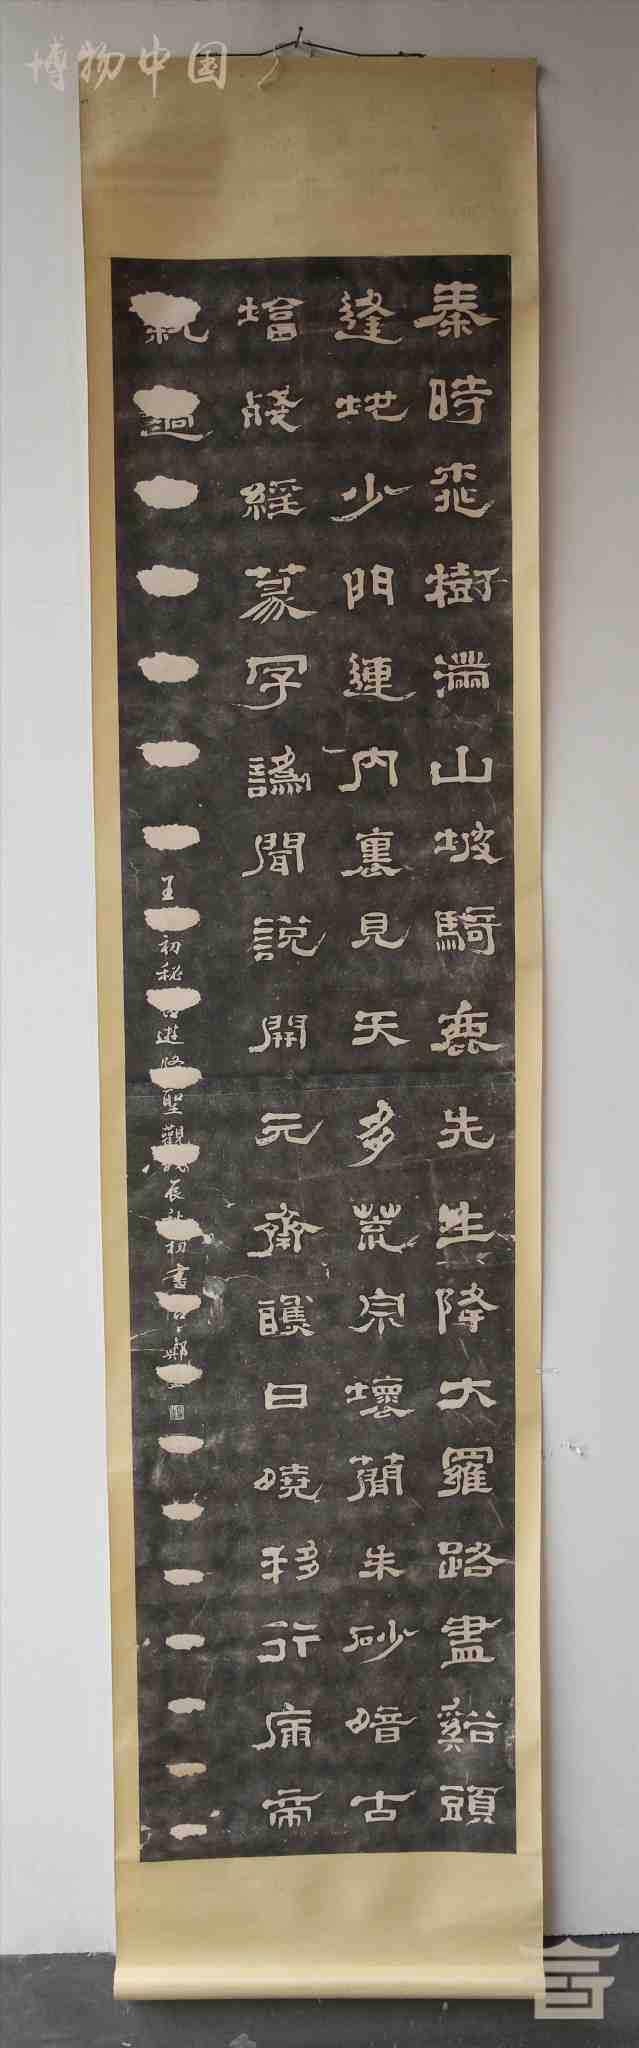 博物中国
秦時桃樹滿山坡騎鹿先生降大羅路盡谿頭
逢地少門連內裏見天多荒宗壞簡朱砂暗古
塔殘經篆字譌聞說開元齋醮日曉移行漏帝
親過
王初秘遊降聖觀辰初書鄭